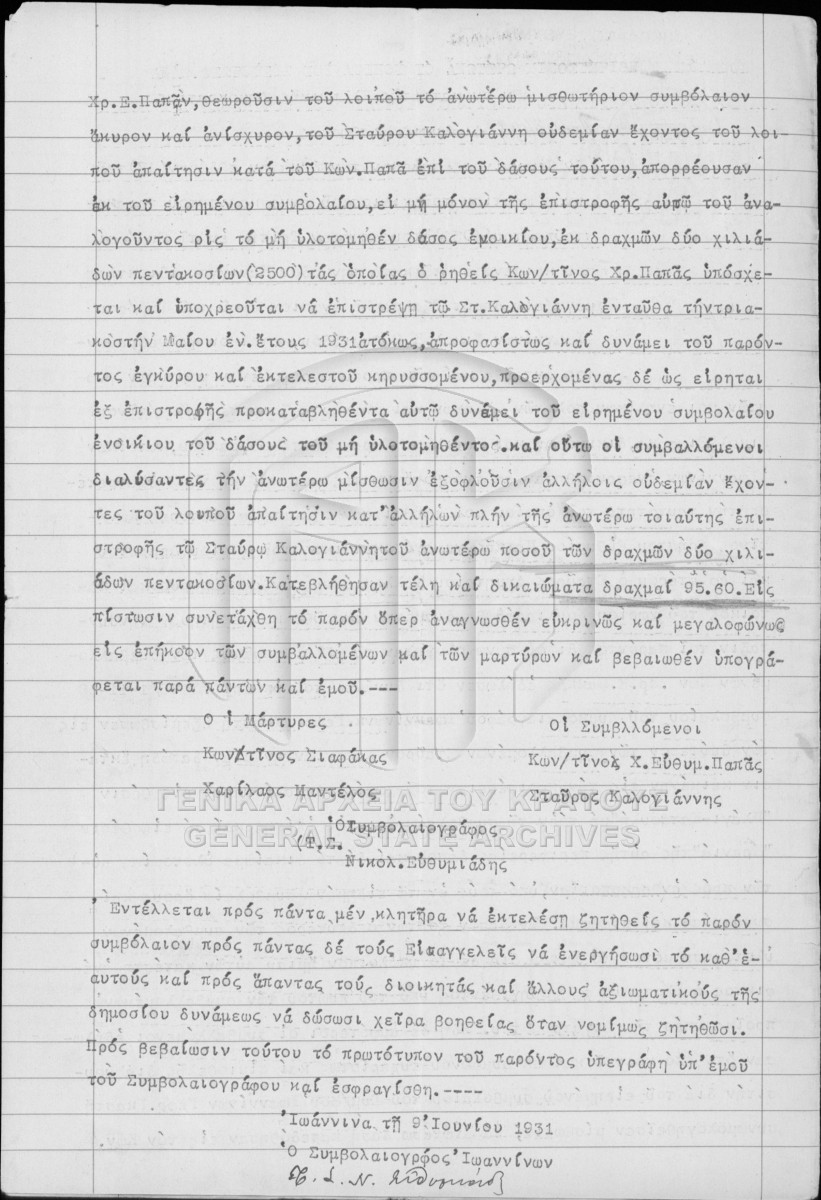 Χρ.Ε.Παπᾶν,θεωροῦσιν τοῦ λοιποῦ τό ἀνωτέρω μισθωτήριον συμβόλαιον
ἄκυρον καί ἀνίσχυρον,τοῦ Σταύρου Καλογιάννη οὐδεμίαν ἔχοντος τοῦ λοι-
ποῦ ἀπαίτησιν κατά τοῦ Κων.Παπᾶ ἐπί τοῦ δάσους τούτου,ἀπορρέουσαν
ἐκ τοῦ εἰρημένου συμβολαίου,εἰ μή μόνον τῆς ἐπιστροφῆς αὐτῷ τοῦ ἀνα-
λογοῦντος ρις τό μή ὑλοτομηθέν δάσος ἐνοικίου,ἐκ δραχμῶν δύο χιλιά-
δων πεντακοσίων(2500)τάς ὁποίας ὁ ρηθείς Κων/τῖνος Χρ.Παπᾶς ὑπόσχε-
ται καί ὑποχρεοῦται νά ἐπιστρέψῃ τῷ Στ.Καλογιάννη ἐνταῦθα τήντρια-
κοστήν Μαΐου ἐν.ἔτους 1931ἀτόκως,ἀπροφασίστως καί δυνάμει τοῦ παρόν-
τος ἐγκύρου καί ἐκτελεστοῦ κηρυσσομένου,προερχομένας δέ ὡς εἴρηται
ἐξ ἐπιστροφῆς προκαταβληθέντα αὐτῷ δυνάμει τοῦ εἰρημένου συμβολαίου
ἐνοικίου τοῦ δάσους τοῦ μή ὑλοτομηθέντος.καί οὕτω οἱ συμβαλλόμενοι
διαλύσαντες τήν ἀνωτέρω μίσθωσιν ἐξοφλοῦσιν ἀλλήλοις οὐδεμίαν ἔχον-
τες τοῦ λοιποῦ ἀπαίτησιν κατ'ἀλλήλων πλήν τῆς ἀνωτέρω τοιαύτης ἐπι-
στροφῆς τῷ Σταύρῳ Καλογιάννητοῦ ἀνωτέρω ποσοῦ τῶν δραχμῶν δύο χιλι-
άδων πεντακοσίων.Κατεβλήθησαν τέλη καί δικαιώματα δραχμαί 95.60.Εἰς
πίστωσιν συνετάχθη τό παρόν ὅπερ ἀναγνωσθέν εὐκρινῶς καί μεγαλοφώνως
εἰς ἐπήκοον τῶν συμβαλλομένων καί τῶν μαρτύρων καί βεβαιωθέν ὑπογρά-
φεται παρά πάντων καί ἐμοῦ.---
Ο ἱ Μάρτυρες
Κων/τῖνος Σιαφάκας
Χαρίλαος Μαντέλος
Οἱ Συμβλλόμενοι
Κων/τῖνος Χ.Εὐθυμ.Παπᾶς
Σταῦρος Καλογιάννης
ΓΕΝΙΚΑ ΑΡΧΕΙΑ ΤΟΥ ΚΡΑΤΟΥΣ
GENERAL STATE ARCHIVES
ὉΣυμβολαιογράφος
(Τ.Σ.
Νικόλ.Εὐθυμιάδης
Ἐντέλλεται πρός πάντα μέν κλητῆρα νά ἐκτελέσῃ ζητηθείς τό παρόν
συμβόλαιον πρός πάντας δέ τούς Εἰσαγγελεῖς νά ἐνεργήσωσι τό καθ'ἑ-
αυτούς καί πρός ἅπαντας τούς διοικητάς καί ἄλλους ἀξιωματικούς τῆς
δημοσίου δυνάμεως νά δώσωσι χεῖρα βοηθείας ὅταν νομίμως ζητηθῶσι.
Πρός βεβαίωσιν τούτου τό πρωτότυπον τοῦ παρόντος ὑπεγράφη ὑπ'ἐμοῦ
τοῦ Συμβολαιογράφου καί ἐσφραγίσθη.----
Ἰωάννινα τῇ 9 Ἰουνίου 1931
Ὁ Συμβολαιογρφος Ἰωαννίνων